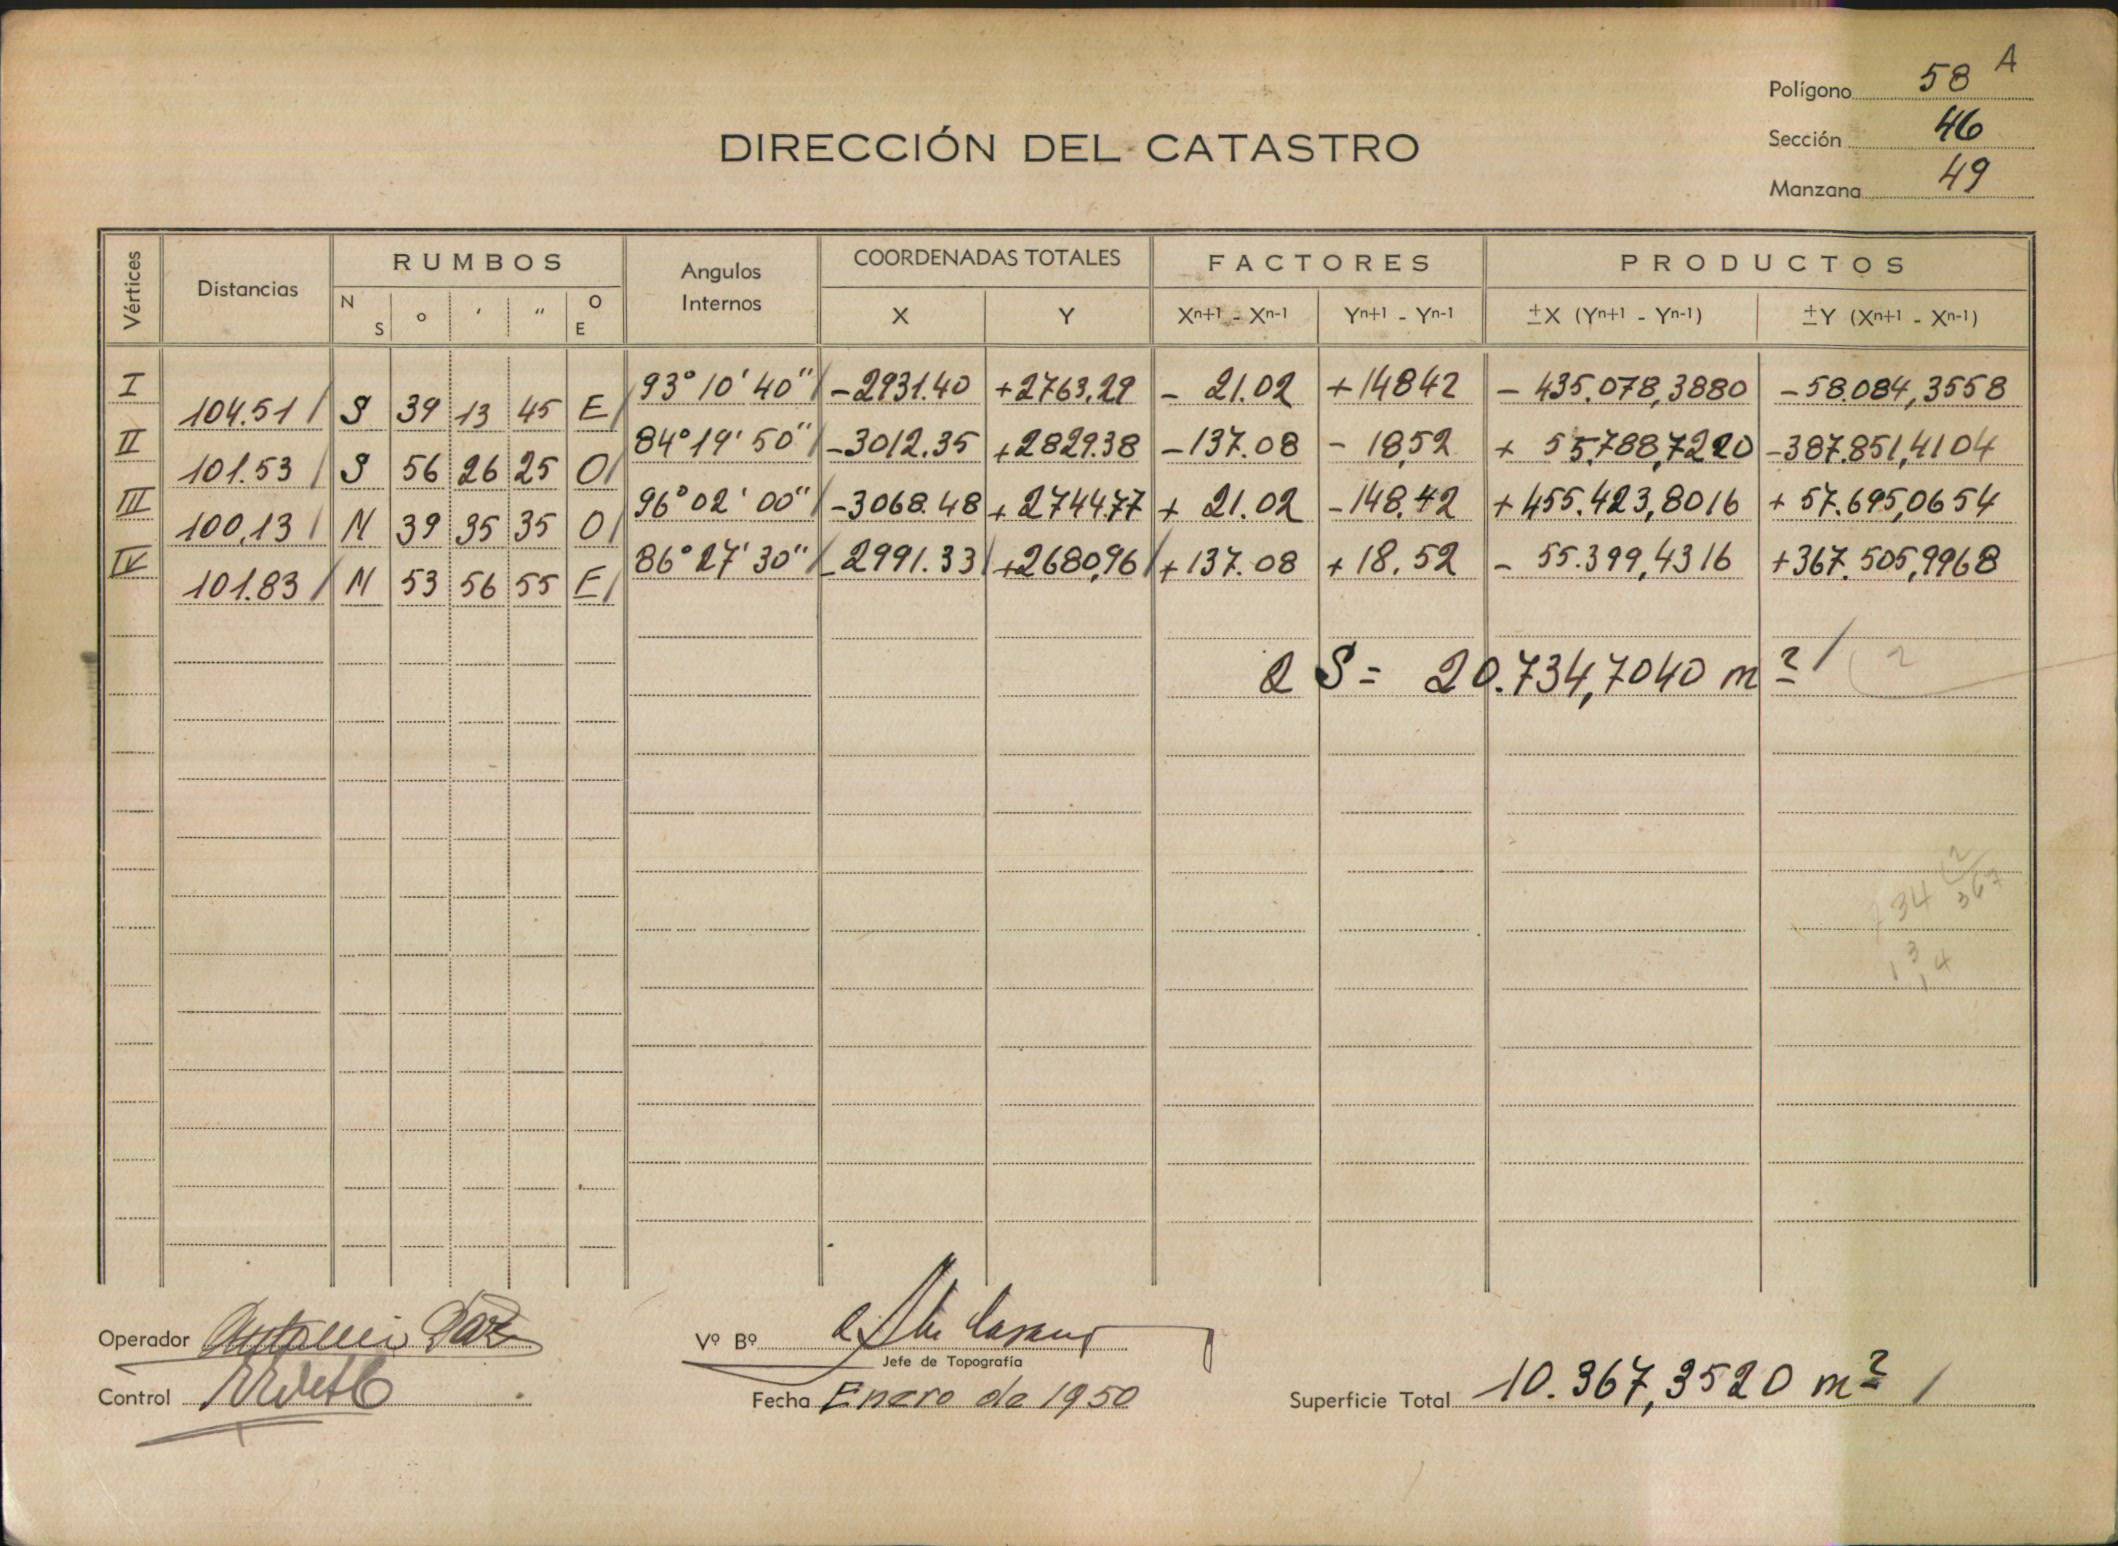 Polígono 58 A
DIRECCIÓN DEL CATASTRO
Sección 46
Manzana 49
Vértices Distancias RUMBOS Angulos Internos COORDENADAS TOTALES FACTORES PRODUCTOS
N S o ' " O E X Y Xn+1 - Xn-1 Yn+1 - Yn-1 ±X (Yn+1 - Yn-1) ±Y (Xn+1 - Xn-1)
I 93° 10' 40" / -2931.40 +2763,29 - 21.02 +14842 - 435.078,3880 -58.084,3558
104.51 / S 39 13 45 E /
II 84° 19' 50" / -3012.35 +2829.38 -137.08 - 18,52 + 55.788,7220 -387.851,4104
101.53 / S 56 26 25 O /
III 96° 02' 00" / -3068.48 + 274477 + 21.02 -148.42 +455.423,8016 + 57.695,0654
100,13 / N 39 35 35 O /
IV 86° 27' 30" / -2991.33 / +2680,96 / +137.08 +18.52 - 55.399,4316 +367.505,9968
101.83 / N 53 56 55 E /
2 S = 20.734,7040 m2 / 2
2
34 367
1 3 4
1
Operador Antonio Paz
Vº Bº
Jefe de Topografía
Control
Fecha Enero de 1950
Superficie Total 10.367,3520 m2 /